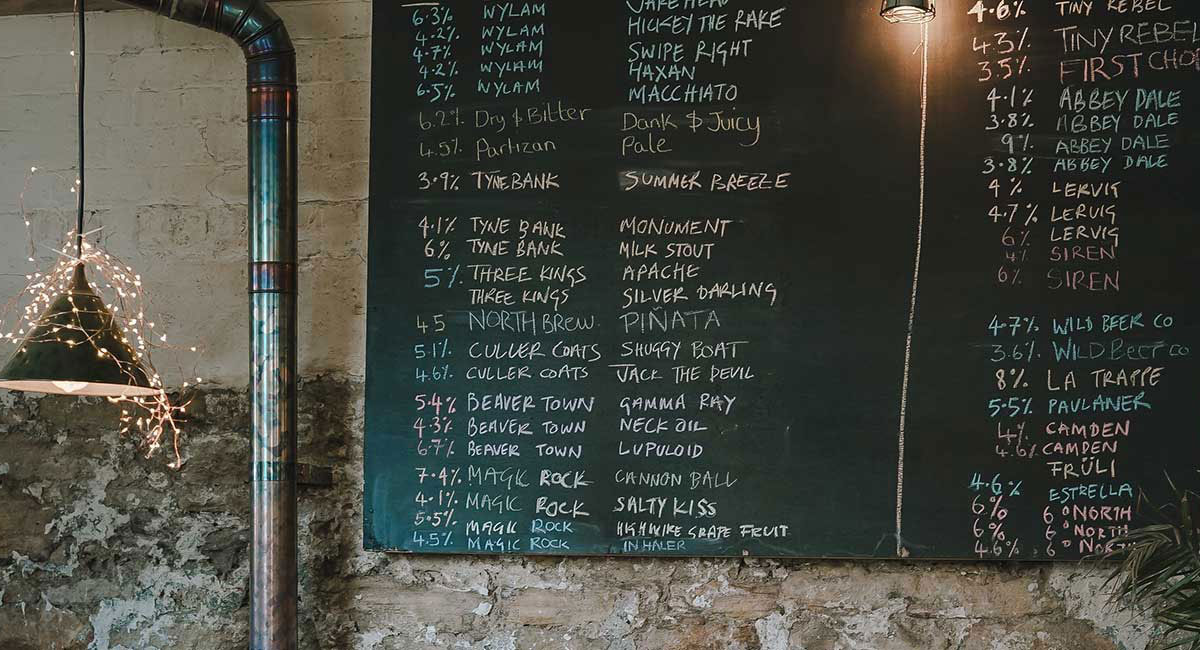 6.3% WYLAM JAKEHEAD
4.2% WYLAM HICKEY THE RAKE
4.7% WYLAM SWIPE RIGHT
4.2% WYLAM HAXAN
6.5% WYLAM MACCHIATO
6.2% Dry & Bitter Dank & Juicy
4.5% Partizan Pale
3.9% TYNE BANK SUMMER BREEZE
4.1% TYNE BANK MONUMENT
6% TYNE BANK MILK STOUT
5% THREE KINGS APACHE
THREE KINGS SILVER DARLING
45 NORTH BREW. PIÑATA
5.1% CULLER COATS SHUGGY BOAT
4.6% CULLER COATS JACK THE DEVIL
5.4% BEAVER TOWN GAMMA RAY
4.3% BEAVER TOWN NECK OIL
6.7% BEAVER TOWN LUPULOID
7.4% MAGIC ROCK CANNON BALL
4.1% MAGIC ROCK SALTY KISS
5.5% MAGIC ROCK HIGHWIRE GRAPE FRUIT
4.5% MAGIC ROCK INHALER
4.6% TINY REBEL
4.3% TINY REBEL
3.5% FIRST CHO
4.1% ABBEY DALE
3.8% ABBEY DALE
9% ABBEY DALE
3.8% ABBEY DALE
4% LERVIG
4.7% LERVIG
6% LERVIG
4% SIREN
6% SIREN
4.7% WILD BEER CO
3.6% WILD BEER CO
8% LA TRAPPE
5.5% PAULANER
4% CAMDEN
4.6% CAMDEN
FRÜLI
4.6% ESTRELLA
6% 6° NORTH
6% 6° NORTH
4.6% 6° NORTH